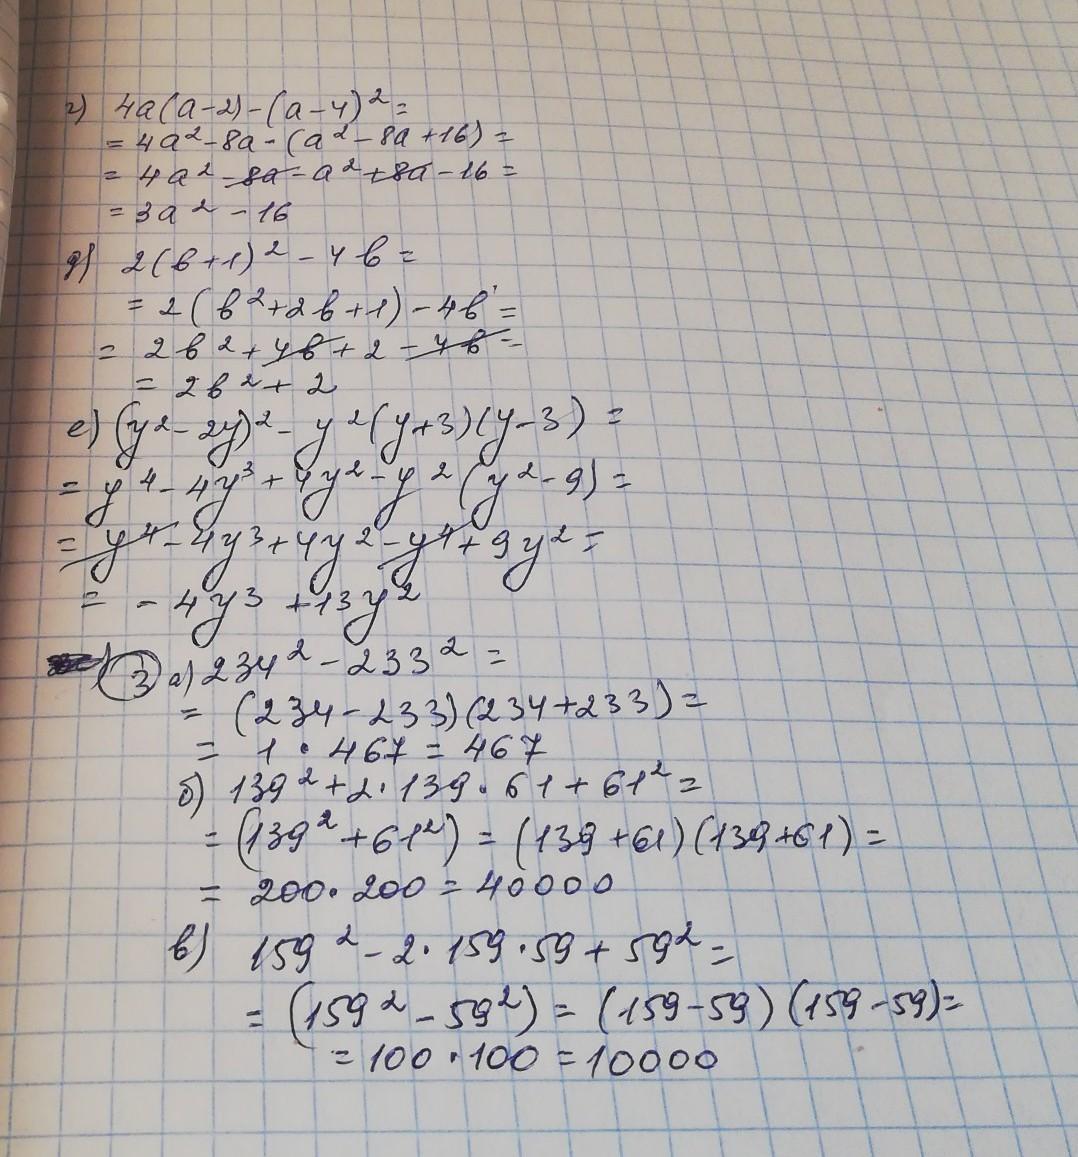 г) 4a(a-2)-(a-4)² =
= 4a²-8a-(a²-8a+16) =
= 4a²-8a-a²+8a-16 =
= 3a²-16
д) 2(b+1)² - 4b =
= 2(b²+2b+1)-4b =
= 2b²+4b+2-4b =
= 2b²+2
е) (y²-2y)²-y²(y+3)(y-3) =
= y⁴-4y³+4y²-y²(y²-9) =
= y⁴-4y³+4y²-y⁴+9y² =
= -4y³+13y²
3 а) 234²-233² =
= (234-233)(234+233) =
= 1·467 = 467
б) 139²+2·139·61+61² =
= (139²+61²) = (139+61)(139+61) =
= 200·200 = 40000
в) 159²-2·159·59+59² =
= (159²-59²) = (159-59)(159-59) =
= 100·100 = 10000